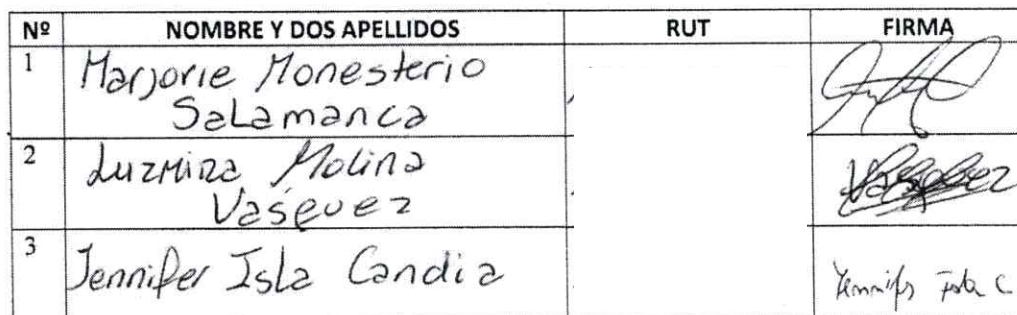 Nº NOMBRE Y DOS APELLIDOS RUT FIRMA
1 Marjorie Monesterio
Salamanca
2 Luzmina Molina
Vaseuez Vasquez
3 Jennifer Isla Candia Jennifer Isla C